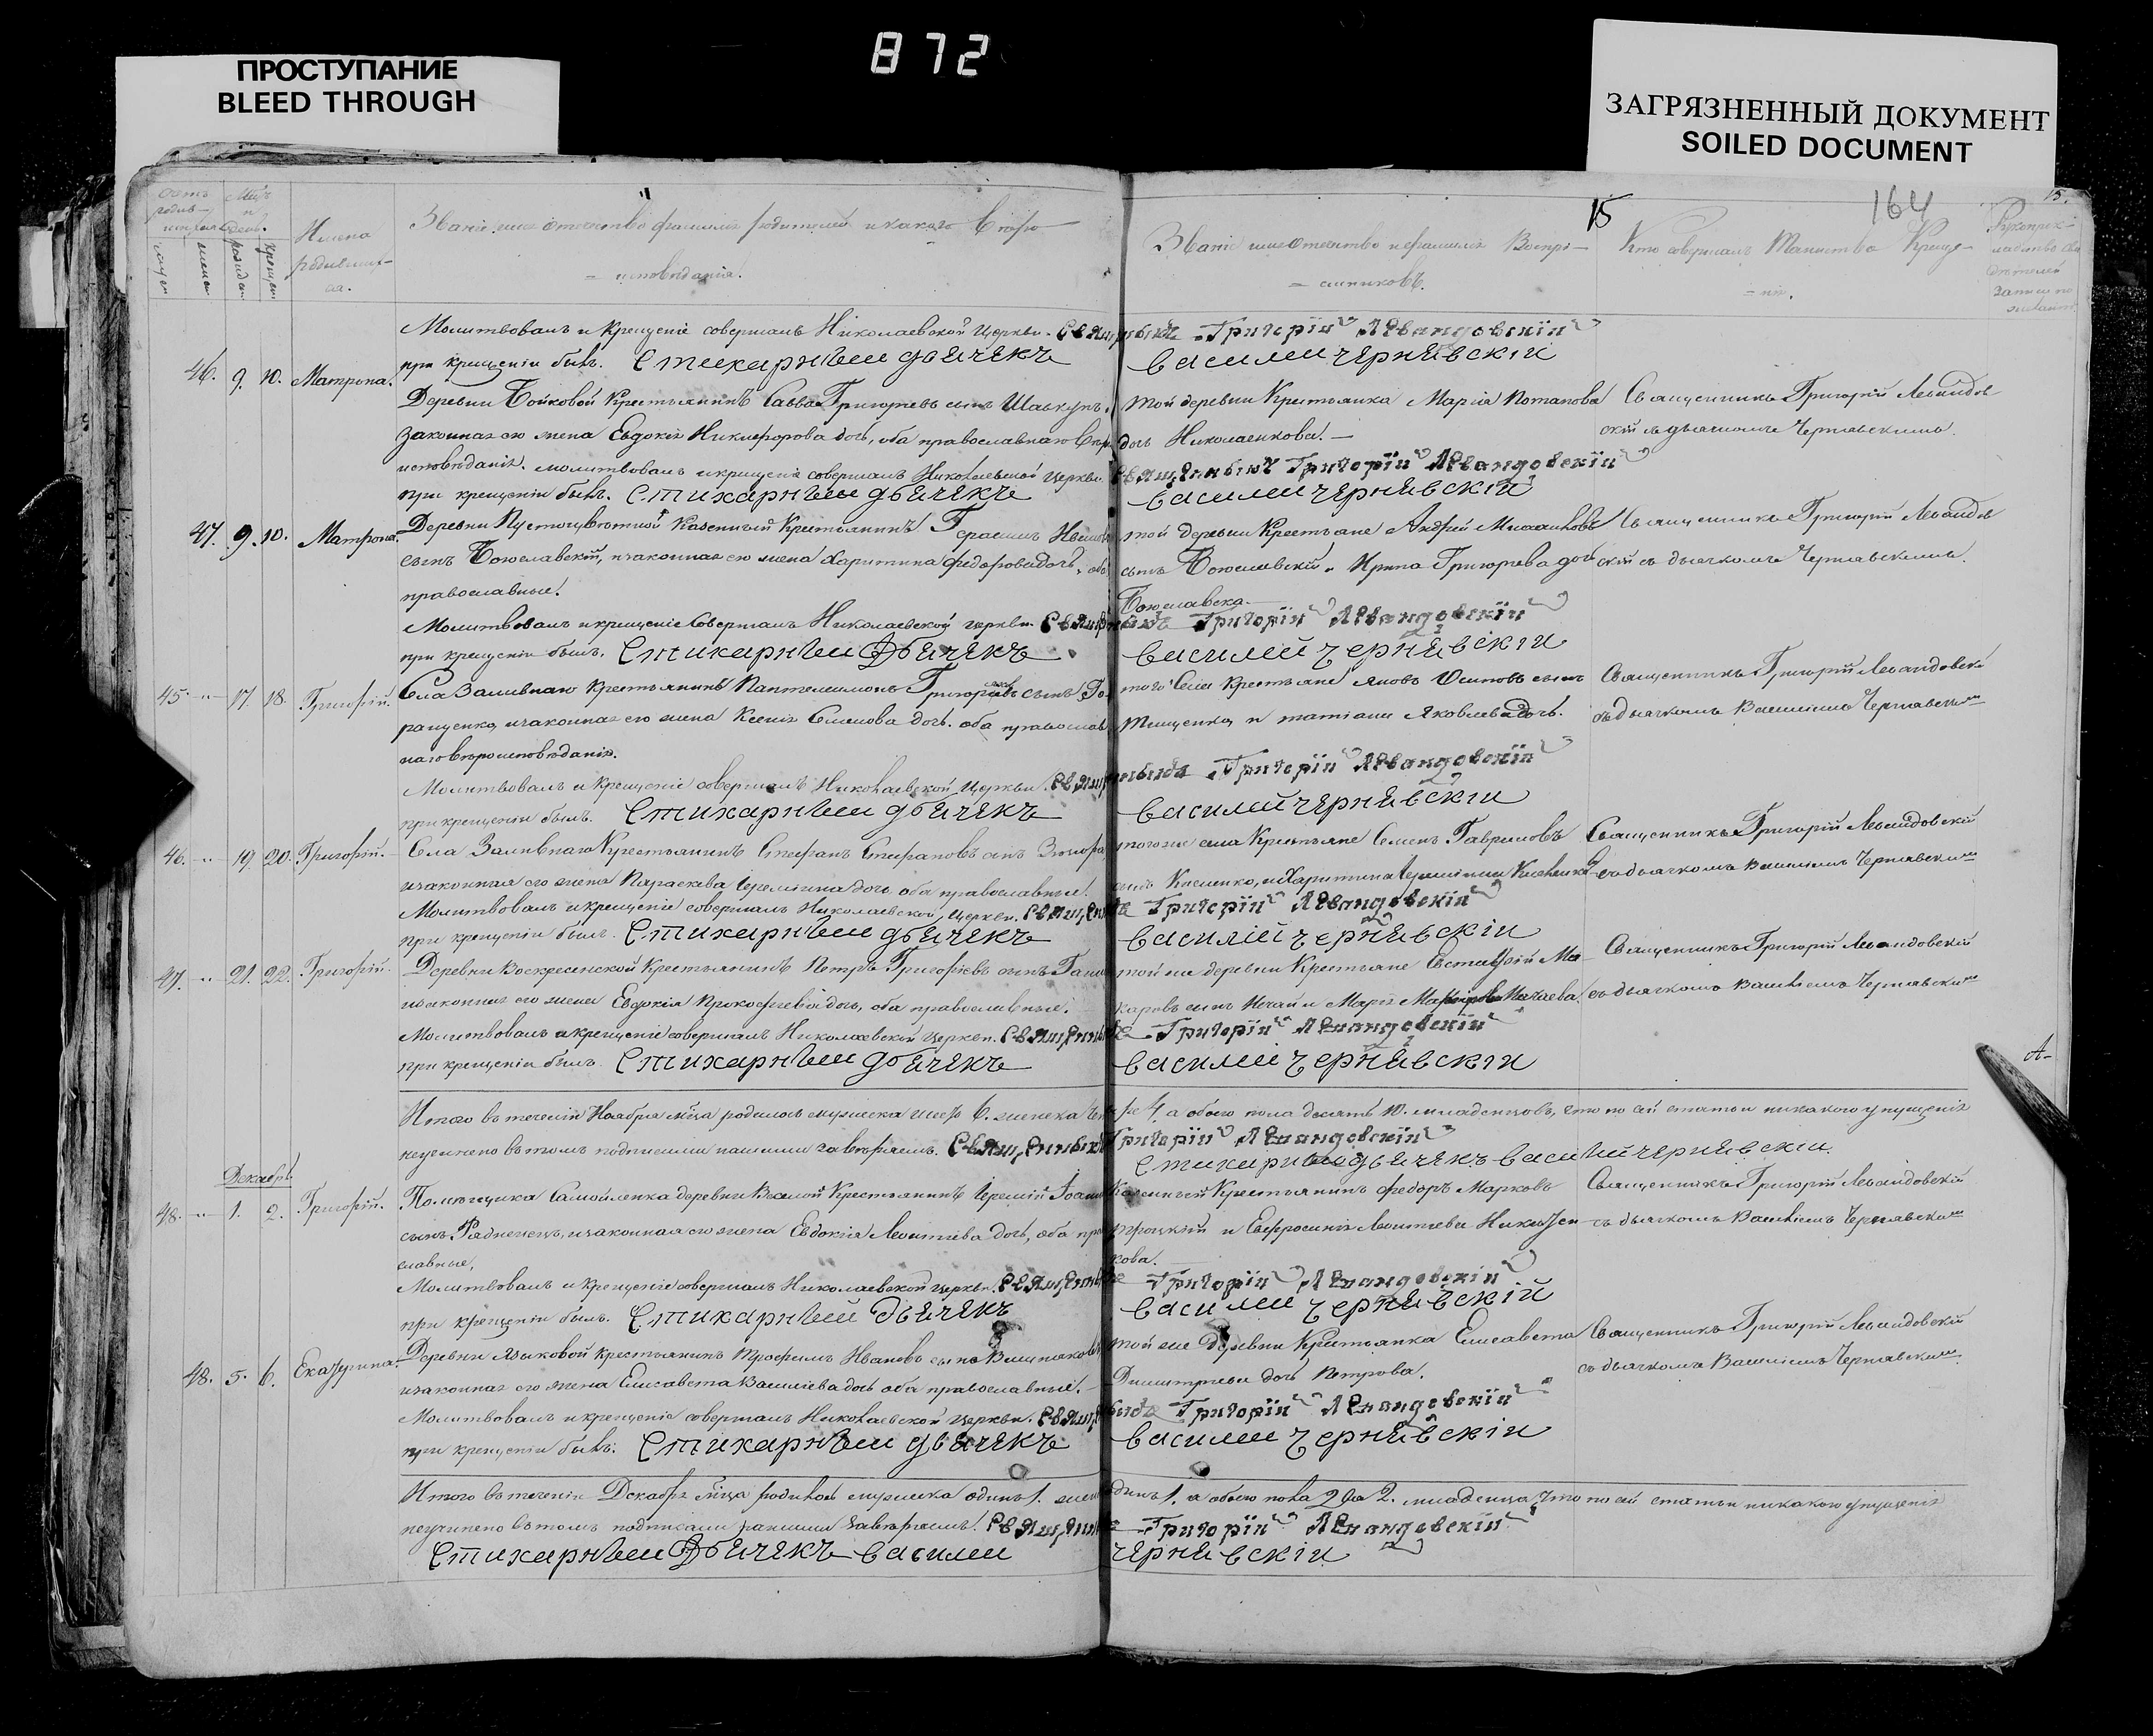 872
ПРОСТУПАНИЕ
BLEED THROUGH
ЗАГРЯЗНЕННЫЙ ДОКУМЕНТ
SOILED DOCUMENT
15
164
15.
Имена родившихся.
Званіе имя отечество фамилія родителей и какого веро-
= исповѣданія.
Званіе имя отечество и фамилія Воспрі-
= емниковъ.
Кто совершалъ Таинство Креще-
= нія.
Молитвовалъ и Крещеніе совершалъ Николаевской Церкви. Священникъ Григорій Левандовскій
при крещеніи былъ. Стихарный дьячекъ Василий Чернявскій
46. 9. 10. Матрона. Деревни Бойковой Крестьянинъ Савва Григорьевъ сынъ
той деревни Крестьянка Марія Потапова
Священникъ Григорій Левандов-
законная его жена Евдокія Никифорова дочь, оба православнаго
дочь Николаенкова.
скій съ дьячкомъ Чернявскимъ.
исповѣданія. молитвовалъ и крещеніе совершалъ Николаевской церкви. Священникъ Григорій Левандовскій
при крещеніи былъ. Стихарный дьячекъ Василий Чернявскій
47. 9. 10. Матрона. Деревни Пустоцвѣтной Казенный Крестьянинъ Герасимъ
той деревни Крестьяне Андрей
Священникъ Григорій Леванdов-
сынъ Богославскій, и законная его жена Харитина Федорова дочь, оба
сынъ Богославскій и Ирина Григорьева дочь
скій съ дьячкомъ Чернявскимъ.
православные.
Богославска.
Молитвовалъ и крещеніе совершалъ Николаевской церкви. Священникъ Григорій Левандовскій
при крещеніи былъ. Стихарный Дьячекъ Василий Чернявскій
45 17. 18. Григорій. Села Заливнаго крестьянинъ Пантелеимонъ Григорьевъ сынъ
того Села Крестьяне Яковъ Осиповъ сынъ
Священникъ Григорій Левандовскі
ращенко, и законная его жена Ксенія Семенова дочь. оба православ
Тищенко, и татіана Яковлева дочь.
съ дьячкомъ Василіемъ Чернявским
наго вѣроисповѣданія.
Молитвовалъ и Крещеніе совершалъ Николаевской Церкви. Священникъ Григорій Левандовскій
при крещеніи былъ. Стихарный дьячекъ Василий Чернявскій
46. 19. 20. Григорій. Села Заливнаго Крестьянинъ Стефанъ Стефановъ сынъ
того же села Крестьяне Семенъ Гавриловъ
Священникъ Григорій Левандовскій
и законная его жена Параскева Іереміина дочь оба православные.
съ дьячкомъ Василіемъ Чернявским
Молитвовалъ и крещеніе совершалъ Николаевской Церкви. Священникъ Григорій Левандовскій
при крещеніи былъ. Стихарный дьячекъ Василій Чернявскій
47. 21. 22. Григорій. Деревни Воскресенской Крестьянинъ Петръ Григорьевъ сынъ
той же деревни Крестьяне Евстафій Ма-
Священникъ Григорій Левандовскій
и законная его жена Евдокія Прокофіева дочь, оба православные.
каровъ сынъ Нечай и Марія
съ дьячкомъ Василіемъ Чернявским
Молитвовалъ и крещеніе совершалъ Николаевской церкви. Священникъ Григорій Левандовскій
при крещеніи былъ. Стихарный дьячекъ Василий Чернявскій
Итого въ теченіи Ноября мѣсца родилось мужеска шесть 6. женска четыре 4. а обоего пола десять 10. младенцовъ, что по сей статьи никакого упущенія
неучинено въ томъ подписями нашими завѣряемъ. Священникъ Григорій Левандовскій
Стихарный дьячекъ Василий Чернявскій.
Декабрь
48. 1. 2. Григорій. Помѣщика Самойленка деревни Веселой Крестьянинъ Іеремій
Казенный Крестьянинъ Федоръ Марковъ
Священникъ Григорій Левандовскій
сынъ и законная его жена Евдокія Леонтіева дочь, оба пра
и Евфросинія Леонтіева
съ дьячкомъ Василіемъ Чернявским
славные.
кова.
Молитвовалъ и крещеніе совершалъ Николаевской церкви. Священникъ Григорій Левандовскій
при крещеніи былъ. Стихарный дьячекъ Василий Чернявскій
48. 5. 6. Екатерина. Деревни Языковой Крестьянинъ Трофимъ Ивановъ сынъ
той же деревни Крестьянка Елисавета
Священникъ Григорій Левандовскій
и законная его жена Елисавета Василіева дочь оба православные.
Димитріева дочь Петрова.
съ дьячкомъ Василіемъ Чернявским
Молитвовалъ и крещеніе совершалъ Николаевской церкви. Священникъ Григорій Левандовскій
при крещеніи былъ. Стихарный дьячекъ Василий Чернявскій
Итого въ теченіи Декабря мѣсца родилось мужеска одинъ 1. женска одинъ 1. а обоего пола два 2. младенца, что по сей статьи никакого упущенія
неучинено въ томъ подписями нашими завѣряемъ. Священникъ Григорій Левандовскій
Стихарный Дьячекъ Василий Чернявскій